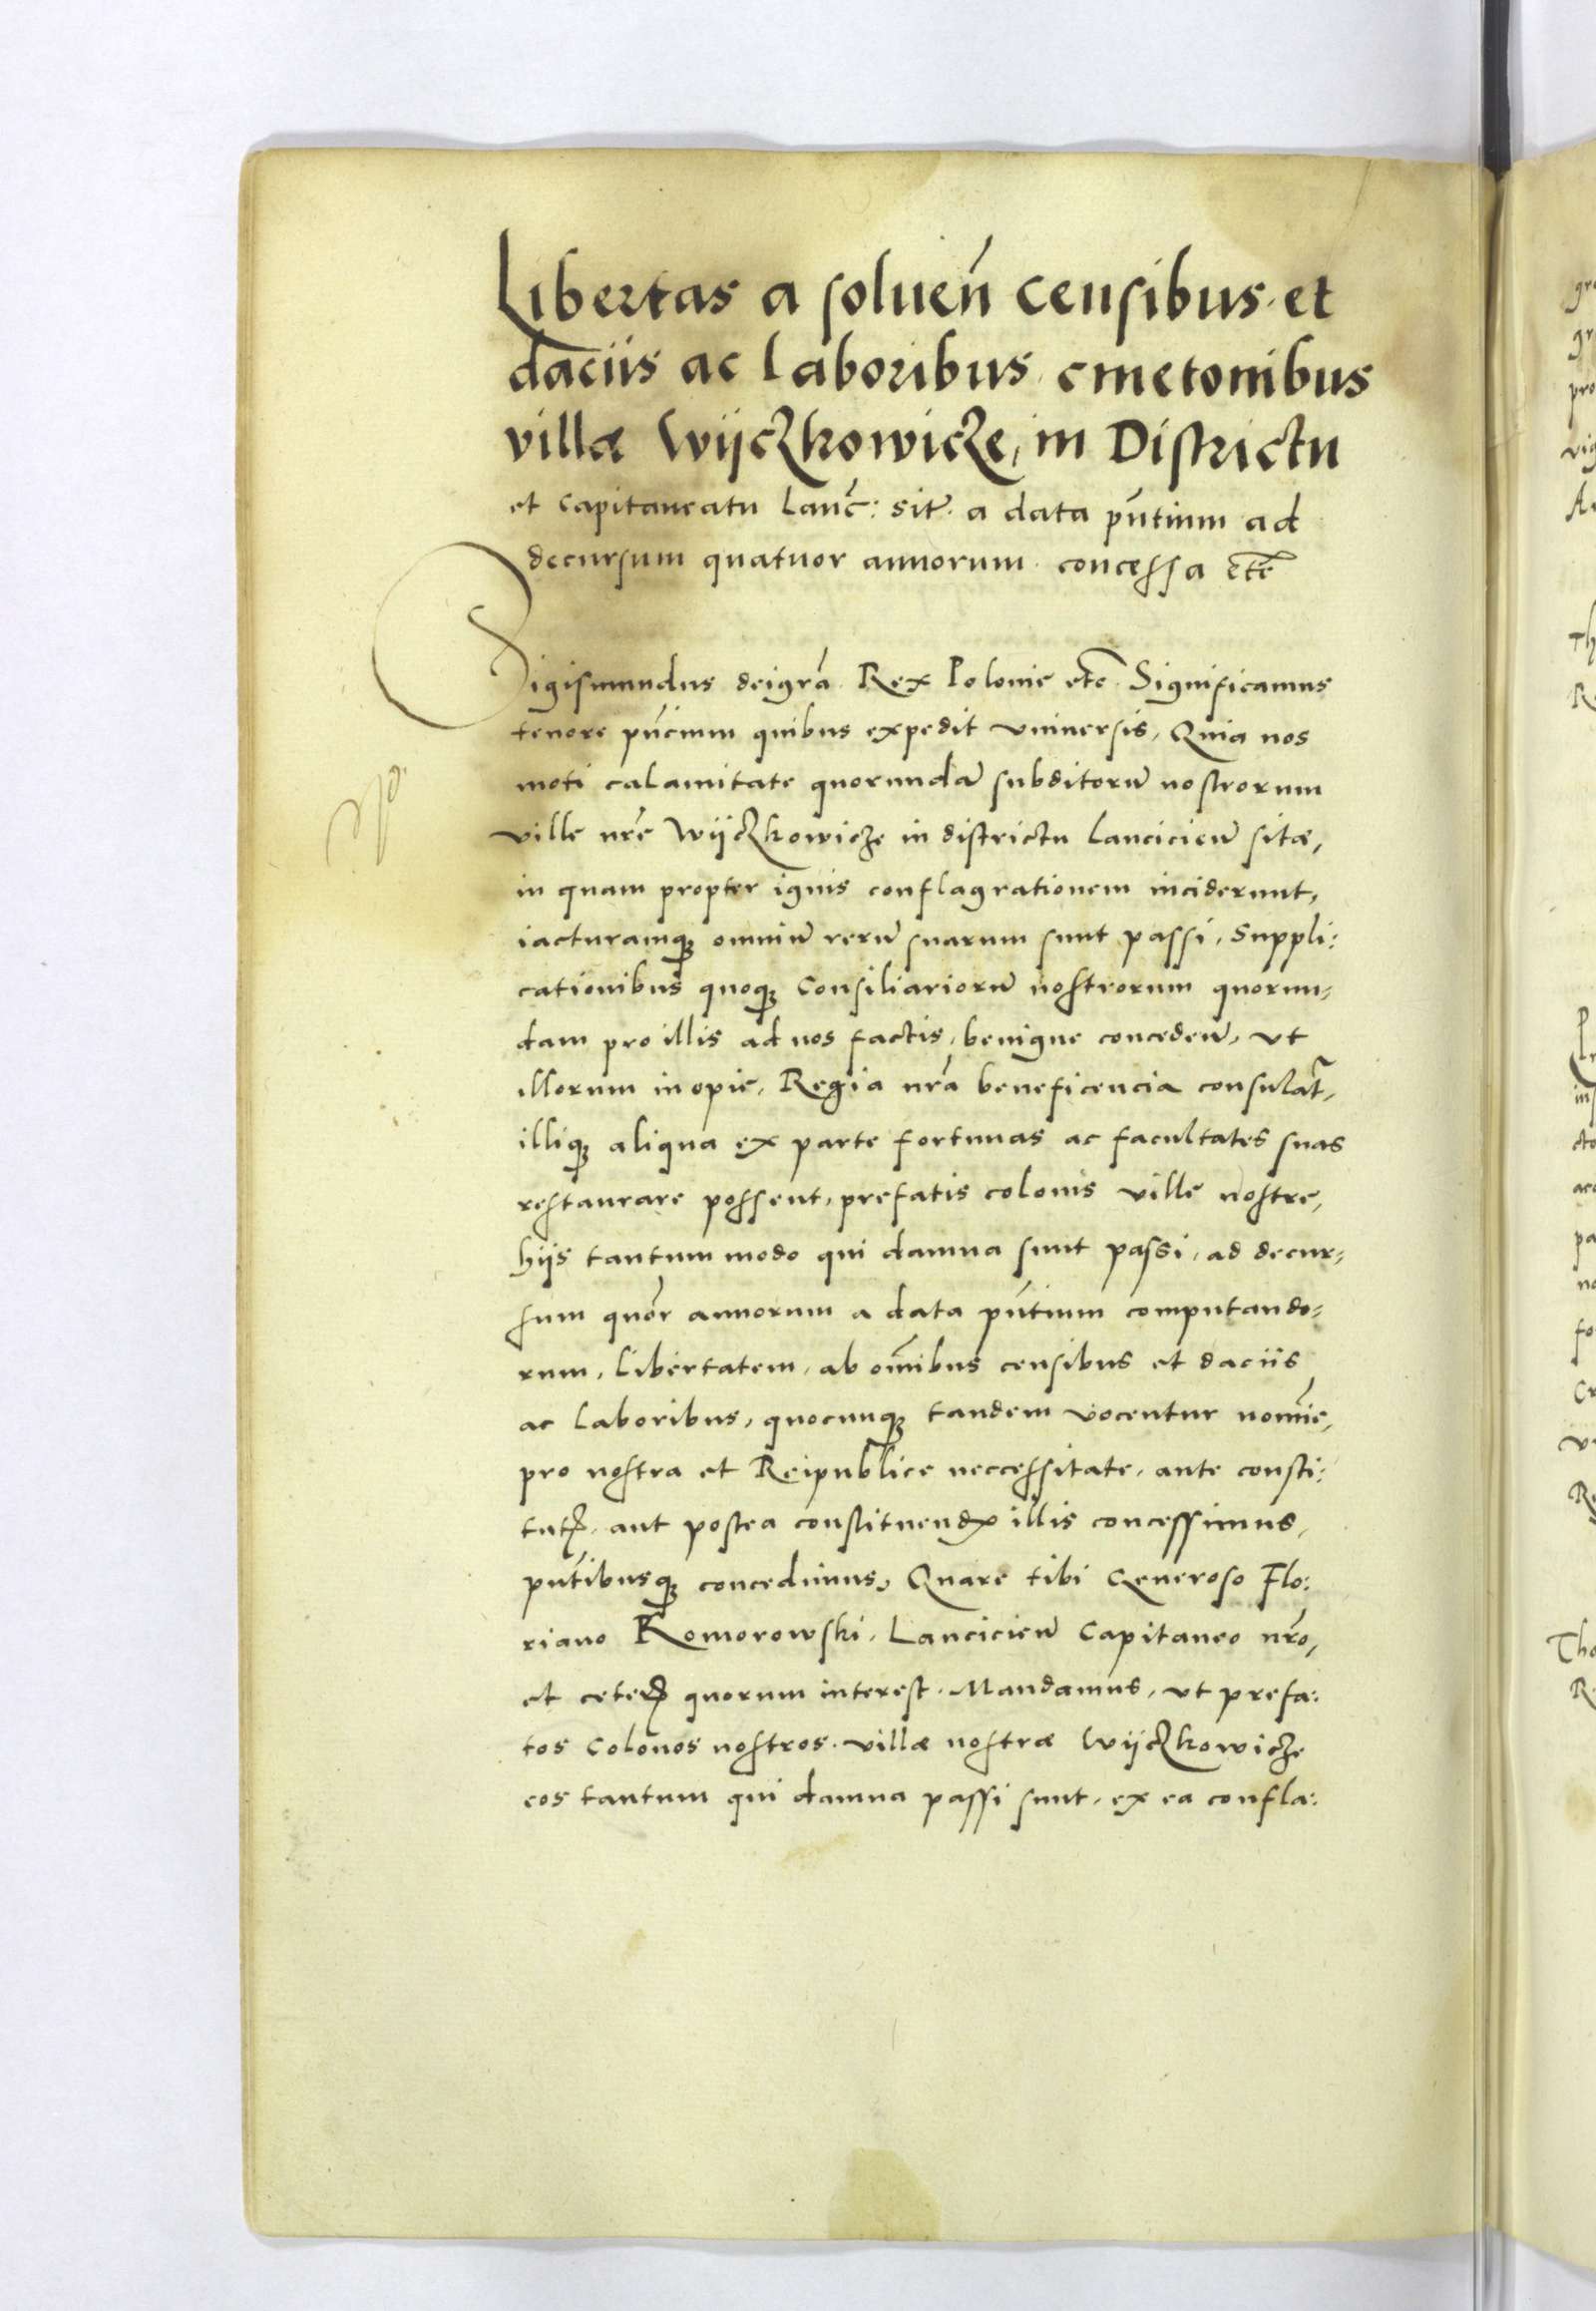 Libertas a soluen̄ censibus et
daciis ac laboribus cmetonibus
villæ Wijczkowicze, in Districtu
et capitaneatu Lanc̄: sit̄. a data pn̄tium ad
decursum quatuor annorum concessa etc̄
Sigismundus dei gr̄a Rex Polonie etc̄ Significamus
tenore pn̄cium quibus expedit vniuersis, Quia nos
moti calamitate quorundā subditorū nostrorum
ville nr̄e Wijczkowicze in districtu Lancicien̄ sitæ,
in quam propter ignis conflagrationem inciderunt,
iacturamqꝫ omniū rerū suarum sunt passi, Suppli:
cationibus quoqꝫ Consiliariorū nostrorum quorun=
dam pro illis ad nos factis, benigne conceden̄, vt
illorum inopie, Regia nr̄a beneficencia consulat̄,
illiqꝫ aliqua ex parte fortunas ac facultates suas
restaurare possent, prefatis colonis ville nostre,
hijs tantummodo qui damna sunt passi, ad decur=
sum quōr annorum a data pn̄tium computando=
rum, Libertatem, ab om̄ibus censibus et daciis
ac laboribus, quocunqꝫ tandem vocentur nomīe,
pro nostra et Reipublice neccessitate, ante consti:
tutꝭ, aut postea constituendꝭ illis concessimus,
pn̄tibusqꝫ concedimus, Quare tibi Generoso Flo:
riano Komorowski, Lancicien̄ Capitaneo nr̄o,
et ceterꝭ quorum interest. Mandamus, vt prefa:
tos Colonos nostros villæ nostræ Wijczkowicze
eos tantum qui damna passi sunt, ex ea confla: